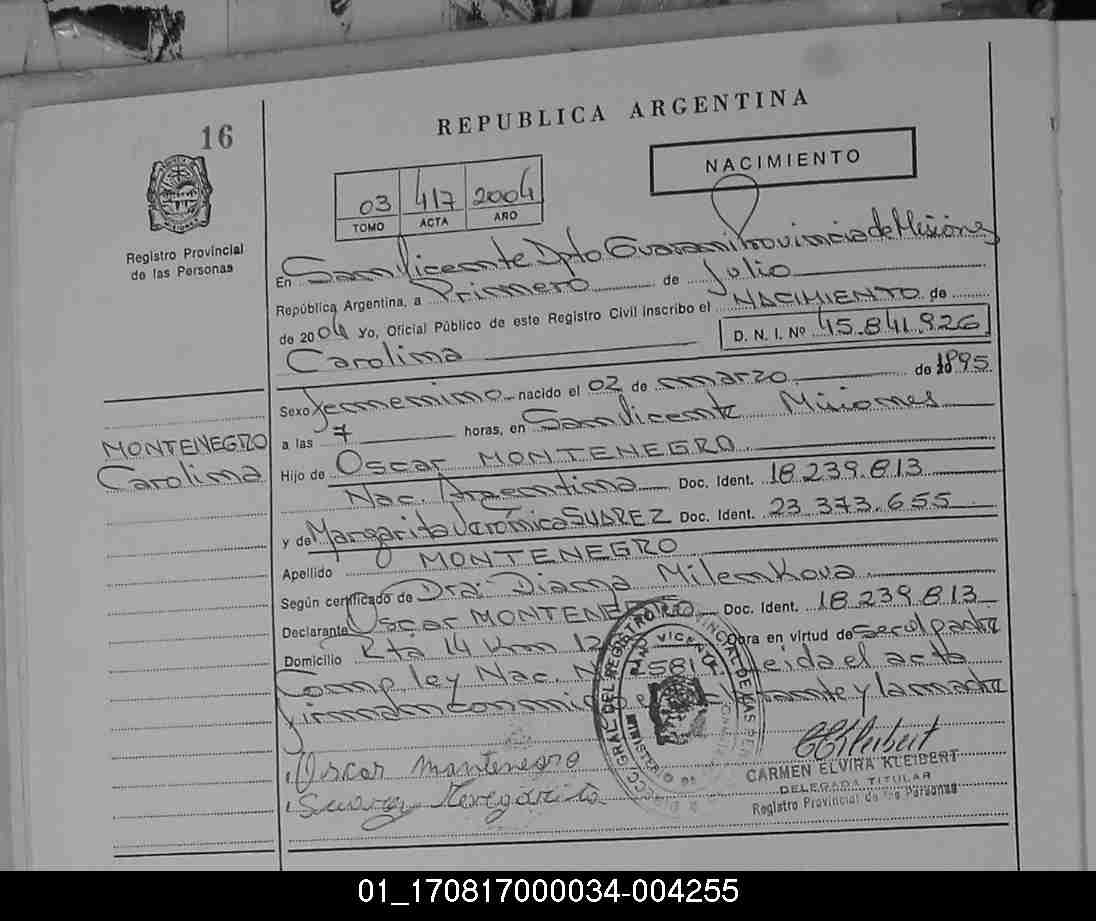 16
REPUBLICA ARGENTINA
NACIMIENTO
03 417 2004
TOMO ACTA AÑO
Registro Provincial
de las Personas
En San Vicente Dpto Guarani Provincia de Misiones
República Argentina, a Primero de Julio
de 2004 Yo, Oficial Público de este Registro Civil inscribo el NACIMIENTO de
Carolina D. N. I. Nº 45.841.926
Sexo femenino nacido el 02 de marzo de 1995
a las 7 horas, en San Vicente Misiones
MONTENEGRO
Carolina
Hijo de Oscar MONTENEGRO
Nac. Argentina Doc. Ident. 18.239.813
y de Margarita Verónica SUAREZ Doc. Ident. 23.373.655
Apellido MONTENEGRO
Según certificado de Dra: Diana Milenkova
Declarante Oscar MONTENEGRO Doc. Ident. 18.239.813
Domicilio Rta 14 Km 12 Obra en virtud de ser el padre
Comp. ley Nac. Nº 581 Leida el acta
firman conmigo el y la madre
Oscar Montenegro
Suarez Margarita
CARMEN ELVIRA KLEIBERT
DELEGADA TITULAR
Registro Provincial de las Personas
01_170817000034-004255